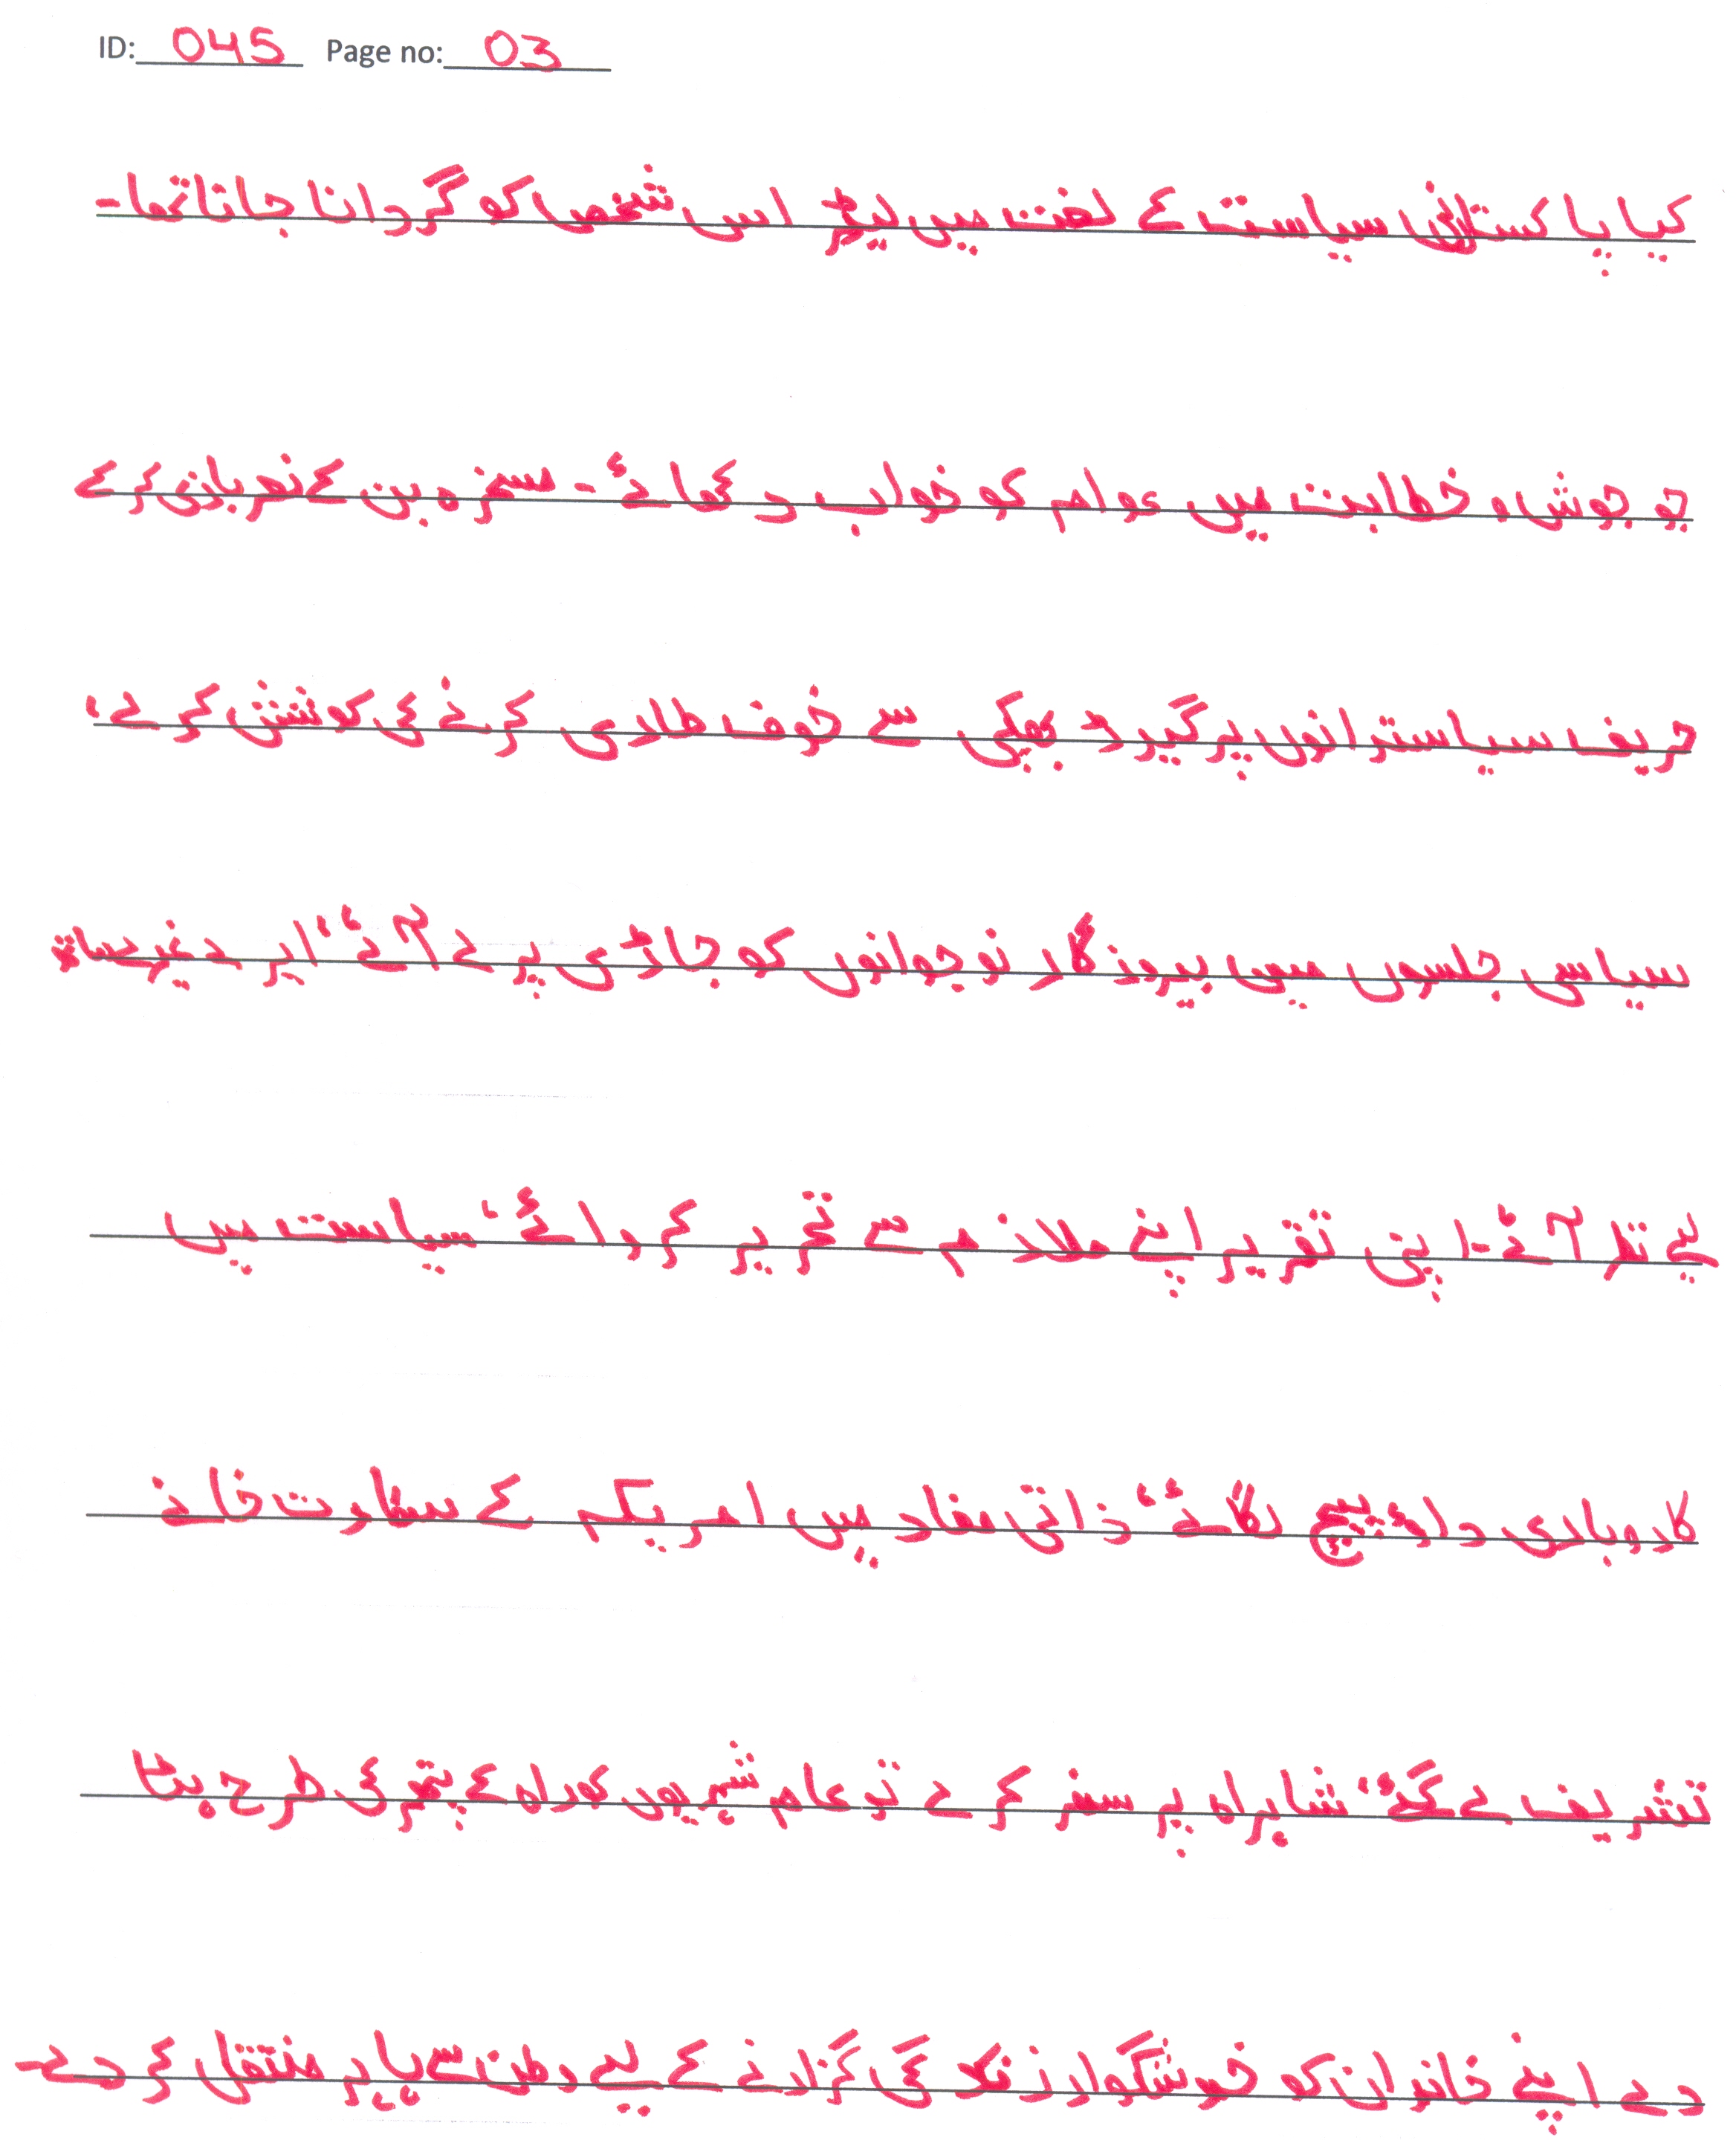 ID: 045 Page no: 03
کیا پاکستانی سیاست کے لغت میں لیڈر اس شخص کو گردانا جاتا تھا۔
جو جوش و خطابت میں عوام کو خواب دکھائے۔ مسخرہ بن کے نعر بازی کرکے
حریف سیاستدانوں پر گیدڑ بھپکی سے خوف طاری کرنے کی کوشش کرے،
سیاسی جلسوں میں بیروزگار نوجوانوں کو جاڑی پر لے آئے، ایر
لیے نظر آئے۔ اپنی تقریر اپنے ملازم سے تحریر کروائے، سیاست میں
کاروباری داؤ پیچ لگائے، ذاتی مفاد میں امریکہ کے سفارت خانے
تشریف لے گئے، شاہراہ پر سفر کرے تو عام شہریوں کو راہ کے پتھر کی طرح ہٹا
دے اپنے خاندان کو خوشگوار زندگی گزارنے کے لیے وطن سے باہر منتقل کر دے۔